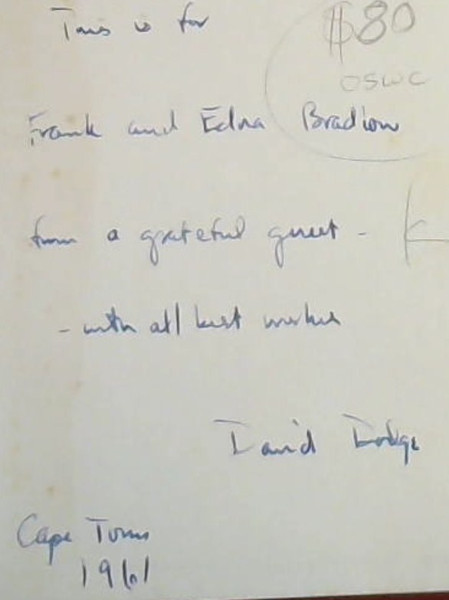 This is for
$80
OSWC
Frank and Edna Bradlow
from a grateful guest -
- with all best wishes
David Dodge
Cape Town
1961